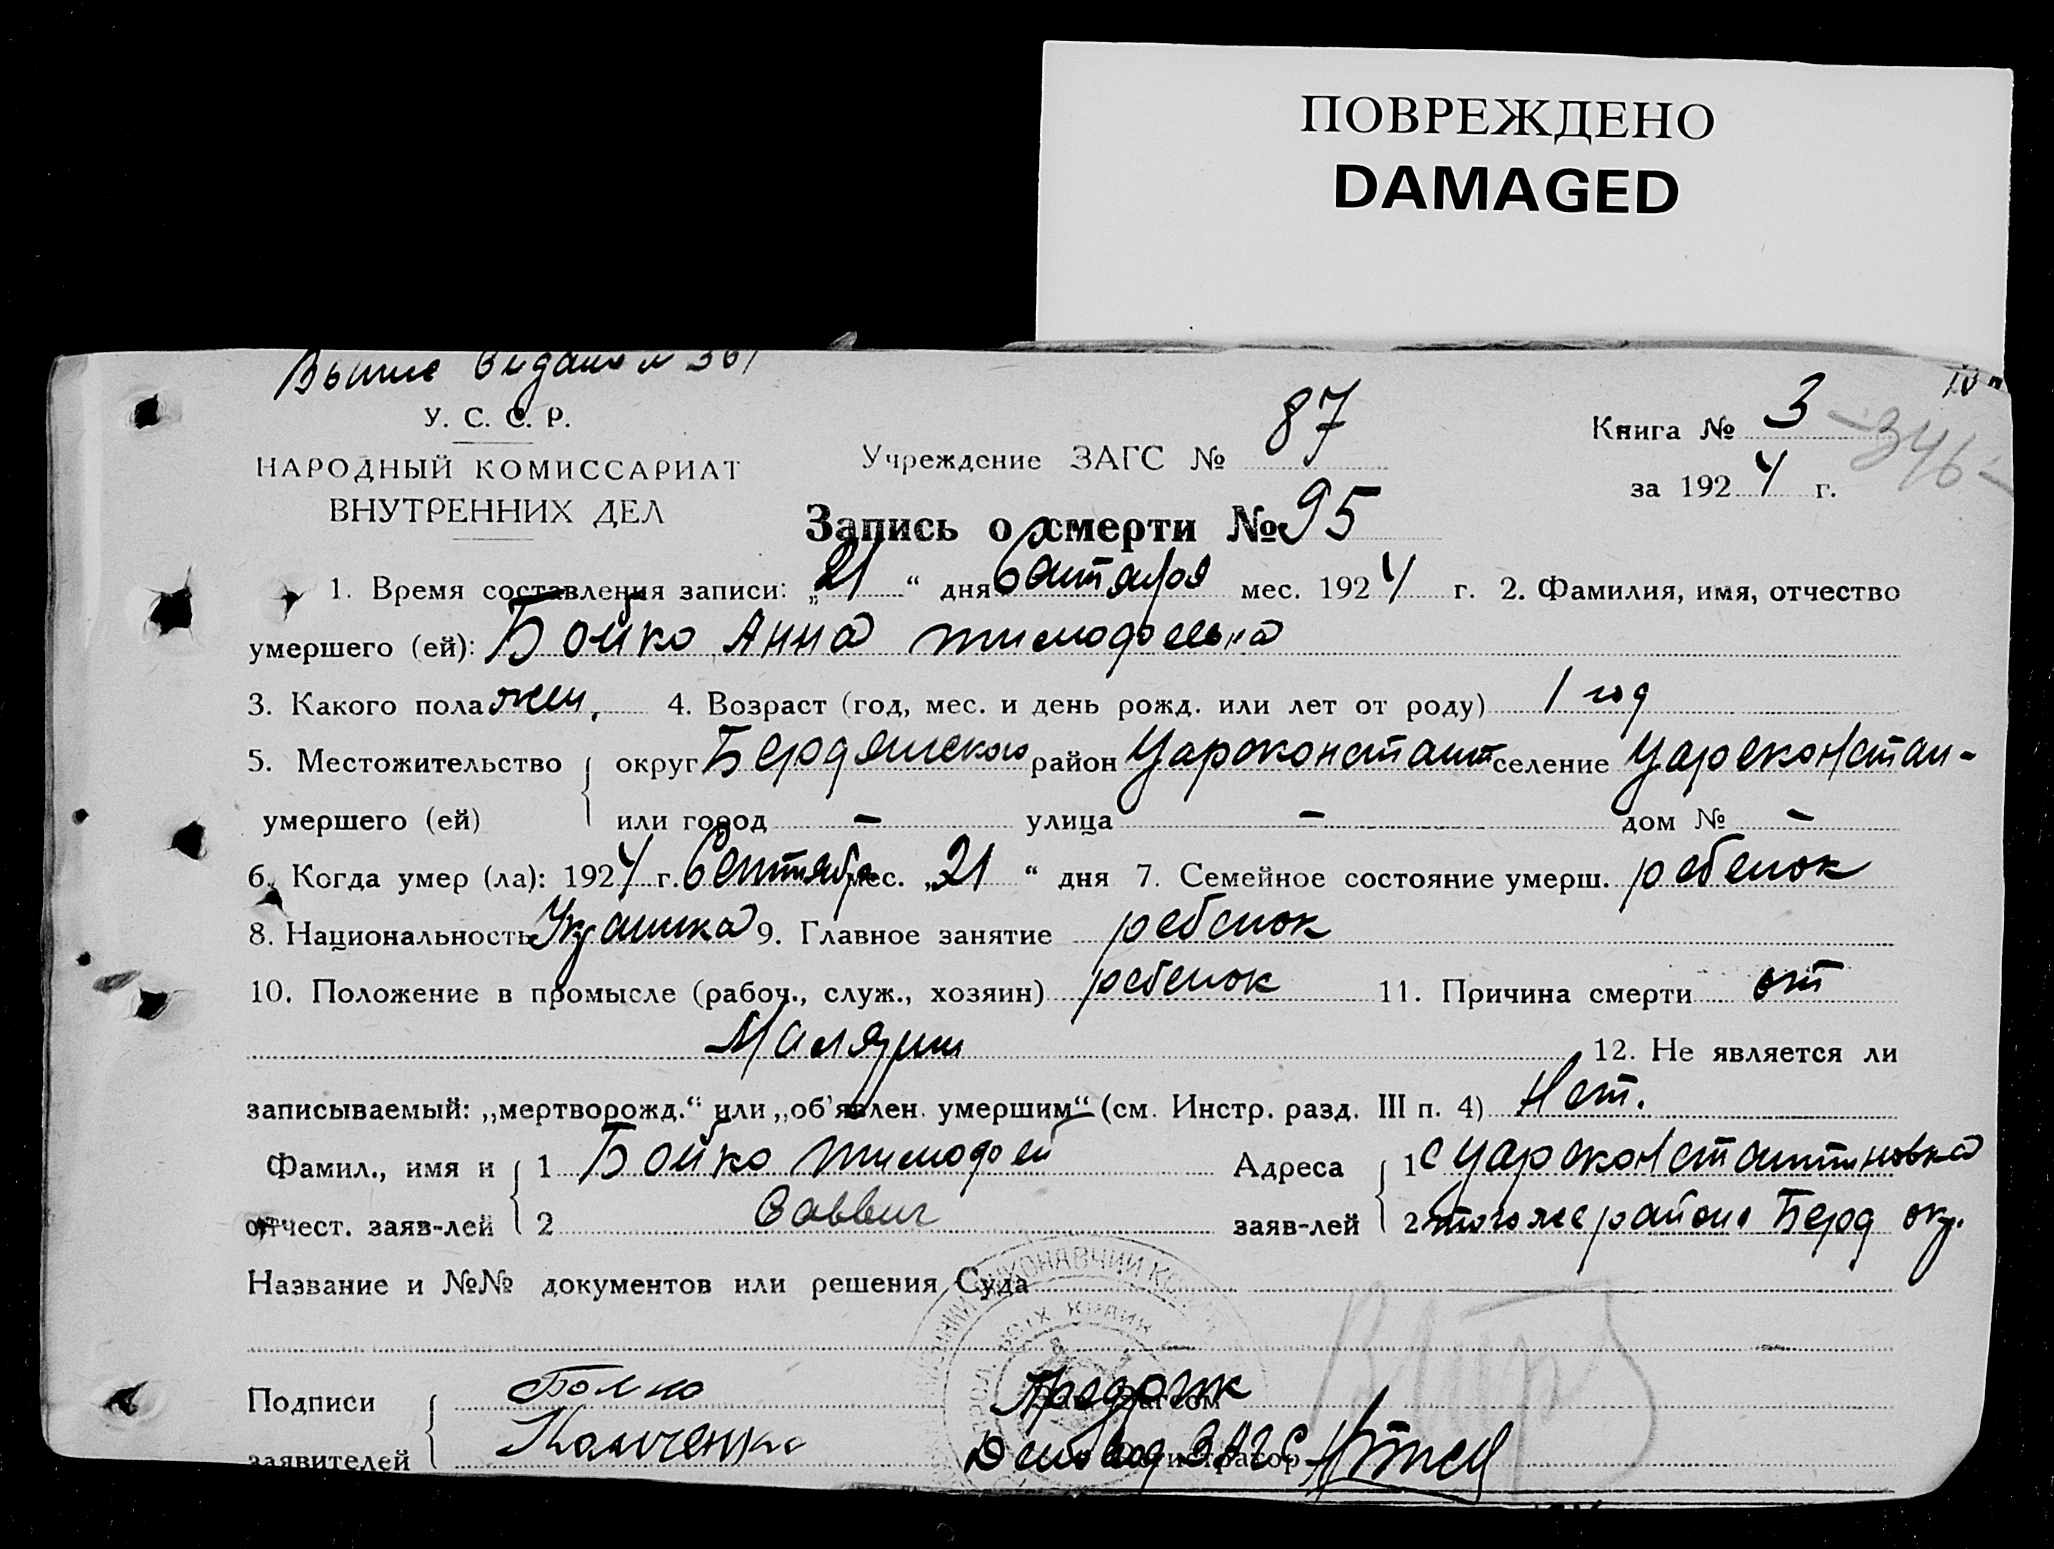 ПОВРЕЖДЕНО
DAMAGED
У. С. С. Р.
НАРОДНЫЙ КОМИССАРИАТ
ВНУТРЕННИХ ДЕЛ
Учреждение ЗАГС № 87
Книга № 3 -346-
за 1924 г.
Запись о смерти № 95
1. Время составления записи: „21“ дня Сентября мес. 1924 г. 2. Фамилия, имя, отчество
умершего (ей): Бойко Анна Тимофеевна
3. Какого пола жен. 4. Возраст (год, мес. и день рожд. или лет от роду) 1 год
5. Местожительство округ Бердянского район Цареконстант селение Цареконстан-
умершего (ей) или город - улица - дом № -
6. Когда умер (ла): 1924 г. Сентября мес. „21“ дня 7. Семейное состояние умерш. ребенок
8. Национальность 9. Главное занятие ребенок
10. Положение в промысле (рабоч., служ., хозяин) ребенок 11. Причина смерти от
Малярии 12. Не является ли
записываемый: „мертворожд.“ или „об'явлен. умершим“ (см. Инстр. разд. III п. 4) Нет.
Фамил., имя и 1 Бойко Тимофей Адреса 1 с Цареконстантиновка
отчест. заяв-лей 2 Саввич заяв-лей 2 того же района Берд окр.
Название и №№ документов или решения Суда
Подписи Бойко
заявителей ЗАГС